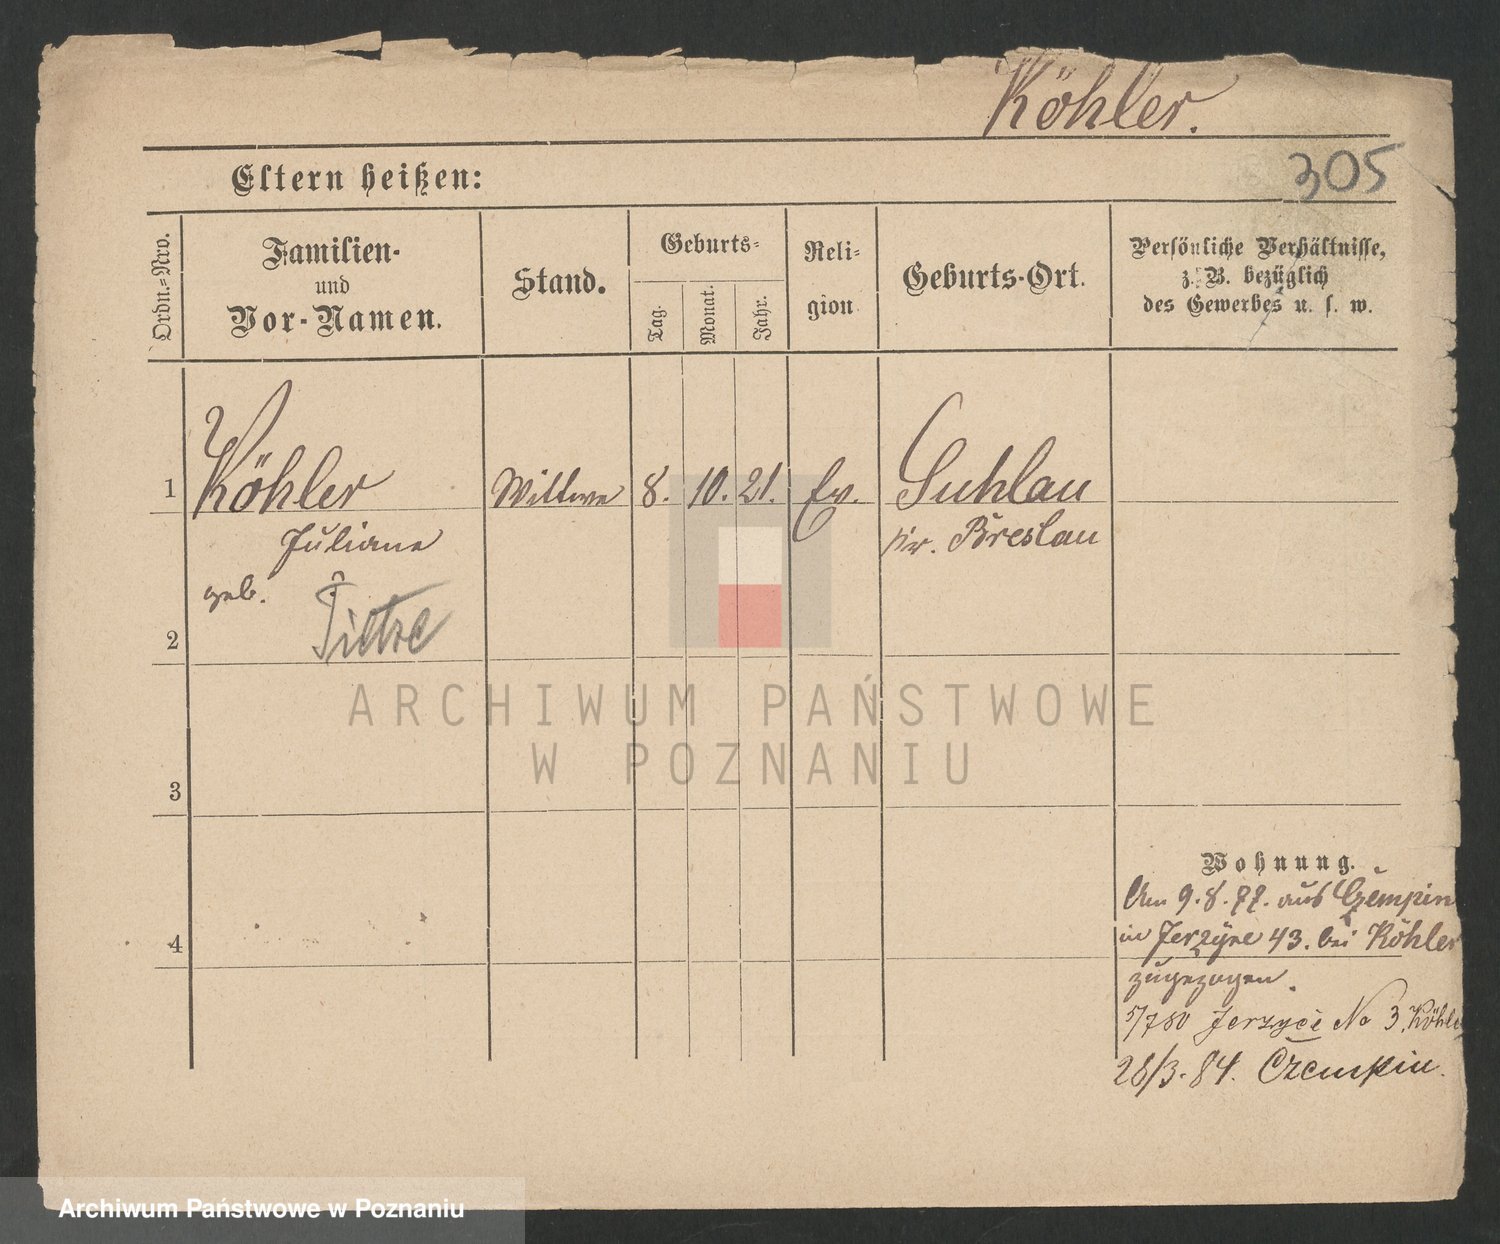 Köhler.
305
Eltern heißen:
Ordn.-Nro.
Familien-
und
Vor-Namen.
Stand.
Geburts-
Tag.
Monat.
Jahr.
Reli-
gion
Geburts-Ort.
Persönliche Verhältnisse,
z. B. bezüglich
des Gewerbes u. s. w.
1 Köhler Wittwe 8. 10. 21. Ev. Suhlau
Juliane Kr. Breslau
geb. Pietze
2
3
4
Wohnung.
Am 9. 8. 77. aus Czempin
in Jerzyce 43. bei Köhler
zugezogen.
5/7 80 Jerzyce No 3. Köhle
28/3. 84. Czempin.
ARCHIWUM PAŃSTWOWE
W POZNANIU
Archiwum Państwowe w Poznaniu